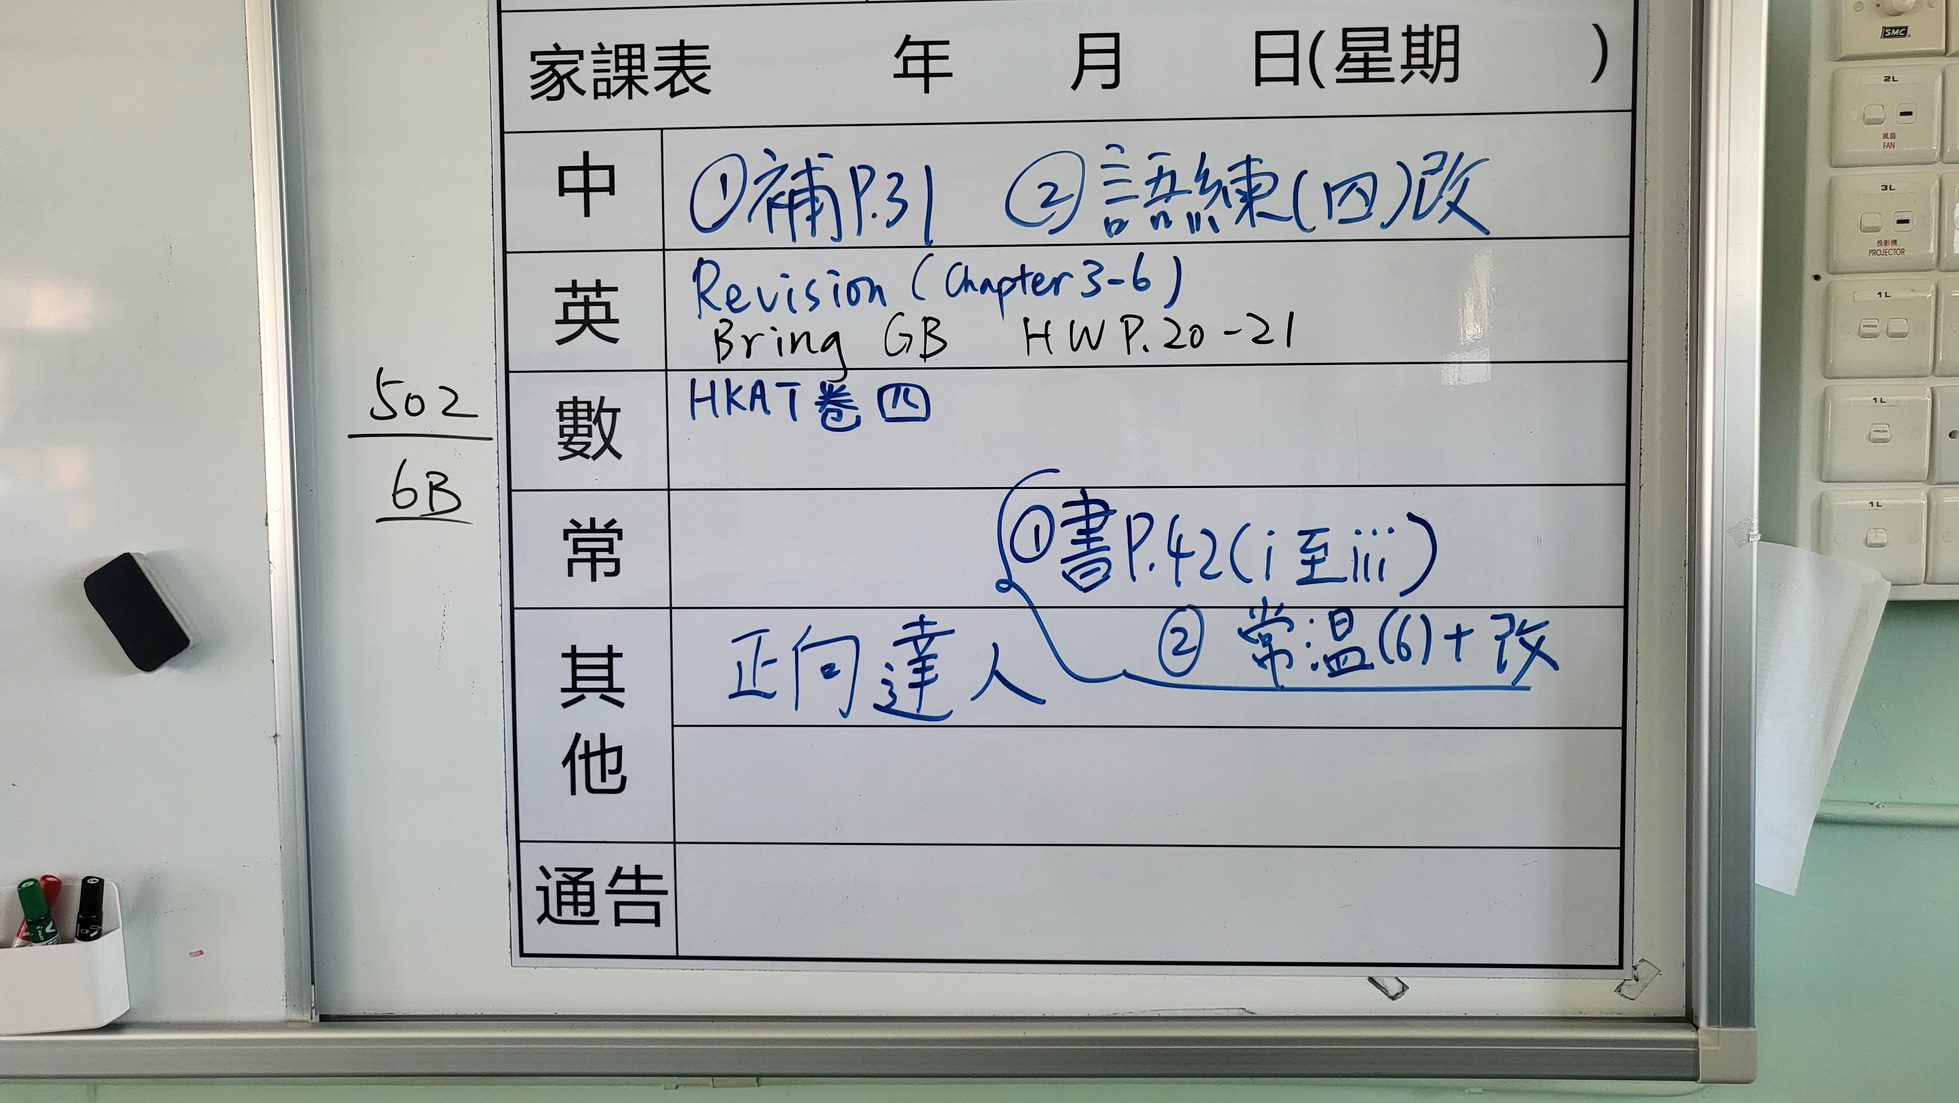 家課表 年 月 日(星期 )
中 ①補P.31 ②語練(四)改
英 Revision (Chapter 3-6)
Bring GB HW P.20-21
數 HKAT卷四
常 ①書P.42(i至iii)
②常溫(6)+改
其他 正向達人
通告
502
6B
SMC
2L
風扇
FAN
3L
投影機
PROJECTOR
1L
1L
1L